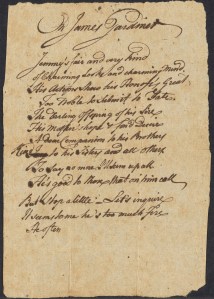 On James Gardiner
Jemmy's fair and very kind
of Charming looks and charming Mind
His Actions Show his Honor's Great
Too Noble to Submit to Fate
The darling offspring of his Sire
His Mother's hope & fond Desire
A Dear Companion to his Brothers
Kind to his Sisters and all others
To Say no more I'll sum up all
He's good to them that on him call
But Stop a little Let's inquire
It seems to me he's too much fire